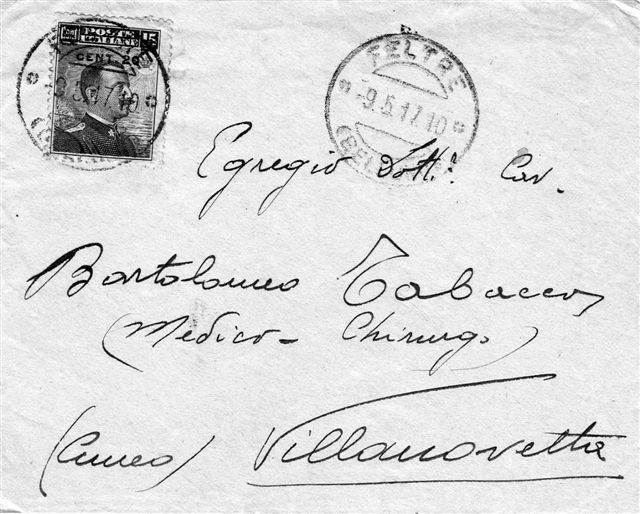 POSTE
Cent 15
CENT 20
-9.5.17.10
FELTRE
-9.5.17.10
Egregio Dott.r Cav.
Bartolomeo Tabacco,
(Medico-Chirurgo)
(Cuneo) Villanovetta